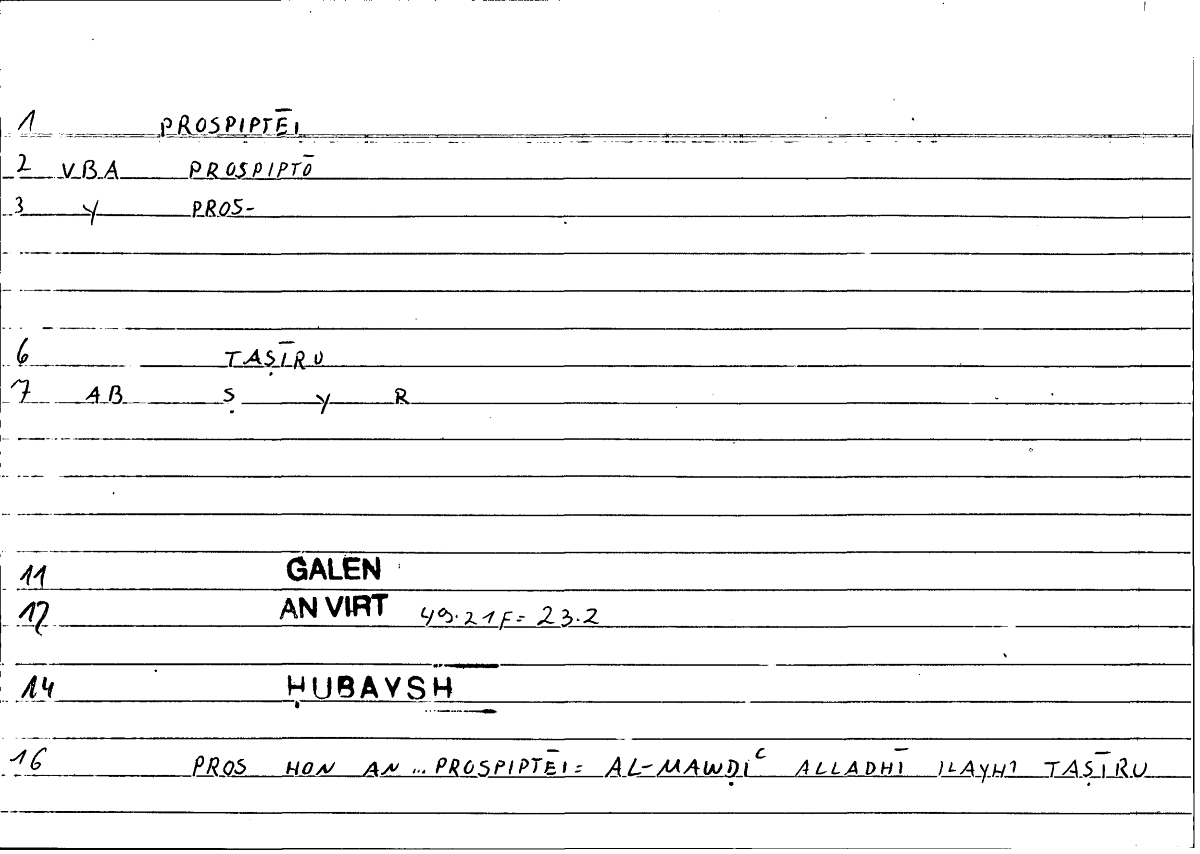 1 PROSPIPTĒI
2 VBA PROSPIPTŌ
3 Y PROS-
6 TAṢĪRU
7 AB Ṣ Y R
11 GALEN
12 AN VIRT 49.21F= 23.2
14 ḤUBAYSH
16 PROS HON AN ... PROSPIPTĒI= AL-MAWḌIʿ ALLADHĪ ILAYHI TAṢĪRU